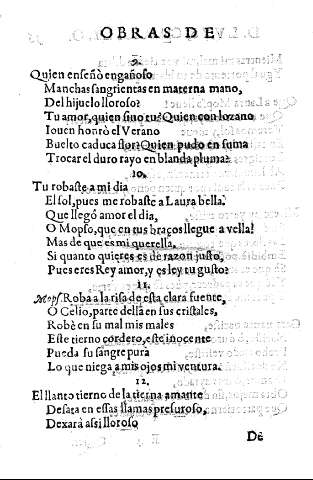 OBRAS DE
9.
Quien enseñò engañoso
Manchas sangrientas en materna mano,
Del hijuelo lloroso?
Tu amor, quien sino tu? Quien con lozano
Iouen honrò el Verano
Buelto caduca flor? Quien pudo en suma
Trocar el duro rayo en blanda pluma?
10.
Tu robaste a mi dia
El sol, pues me robaste a Laura bella.
Que llegó amor el dia,
O Mopso, que en tus braços llegue a vella!
Mas de que es mi querella.
Si quanto quieres es de razon justo,
Pues eres Rey amor, y es ley tu gusto?
11.
Mops. Roba a la risa de esta clara fuente,
O Celio, parte della en sus cristales,
Robè en su mal mis males
Este tierno cordero, este inocente
Pueda su sangre pura
Lo que niega a mis ojos mi ventura.
12.
El llanto tierno de la tierna amante
Desata en essas llamas presuroso,
Dexarà assi lloroso
De